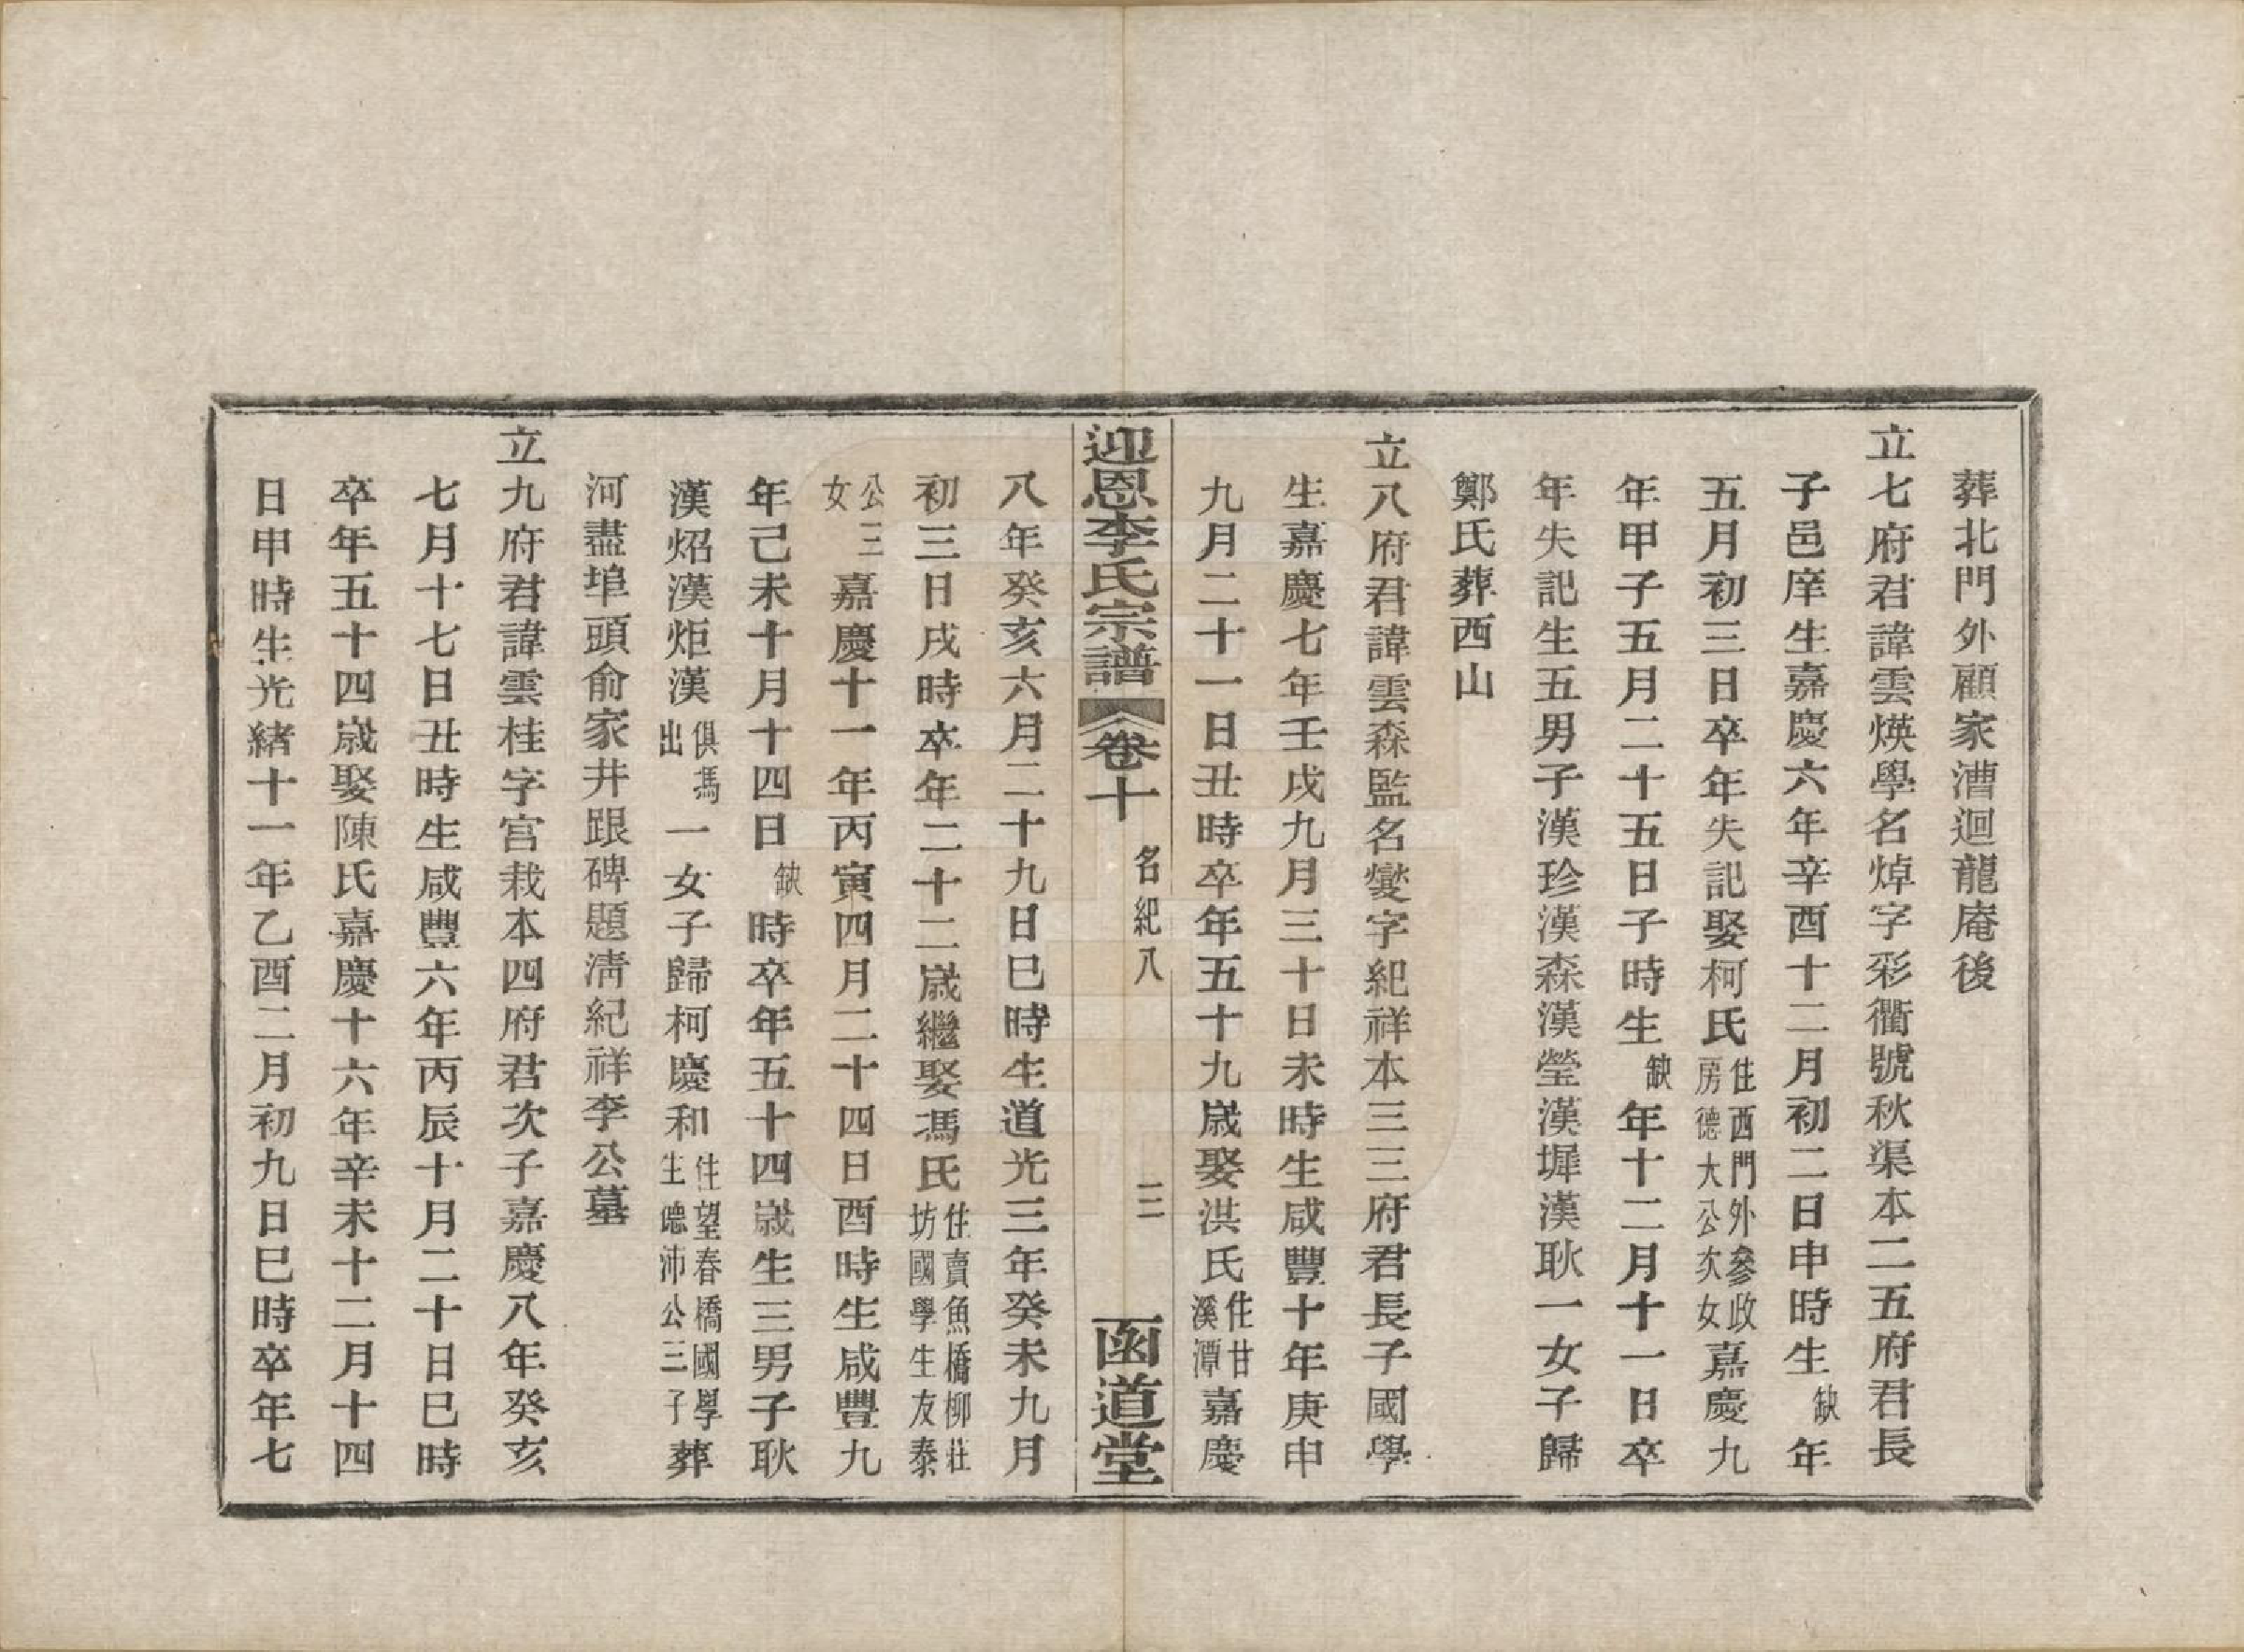 葬北門外顧家漕迴龍庵後
立七府君諱雲煐學名焯字彩衢號秋渠本二五府君長
子邑庠生嘉慶六年辛酉十二月初二日申時生缺年
五月初三日卒年失記娶柯氏住西門外參政房德大公次女嘉慶九
年甲子五月二十五日子時生缺年十二月十一日卒
年失記生五男子漢珍漢森漢瑩漢墀漢耿一女子歸
鄭氏葬西山
立八府君諱雲森監名燮字紀祥本三三府君長子國學
生嘉慶七年壬戌九月三十日未時生咸豐十年庚申
九月二十一日丑時卒年五十九歲娶洪氏住甘溪潭嘉慶
迎恩李氏宗譜 卷十 名紀八 三 函道堂
八年癸亥六月二十九日巳時生道光三年癸未九月
初三日戌時卒年二十二歲繼娶馮氏住賣魚橋柳莊坊國學生友泰
公三女嘉慶十一年丙寅四月二十四日酉時生咸豐九
年己未十月十四日缺時卒年五十四歲生三男子耿
漢炤漢炬漢俱馮出一女子歸柯慶和住望春橋國學生德沛公三子葬
河盡埠頭俞家井跟碑題清紀祥李公墓
立九府君諱雲桂字宮栽本四府君次子嘉慶八年癸亥
七月十七日丑時生咸豐六年丙辰十月二十日巳時
卒年五十四歲娶陳氏嘉慶十六年辛未十二月十四
日申時生光緒十一年乙酉二月初九日巳時卒年七